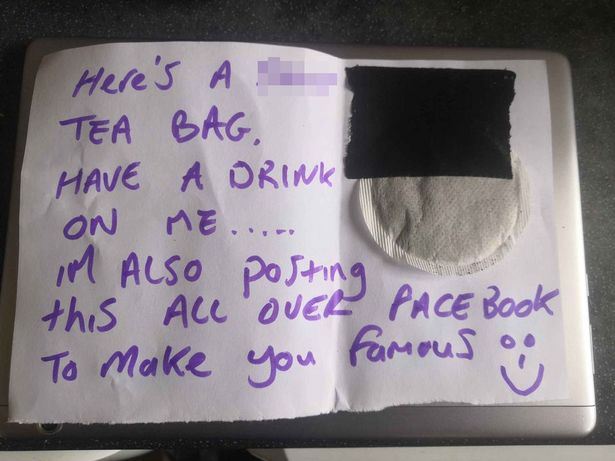 HERE'S A
TEA BAG.
HAVE A DRINK
ON ME.....
IM ALSO posting
this ALL OVER FACEBOOK
To Make you famous